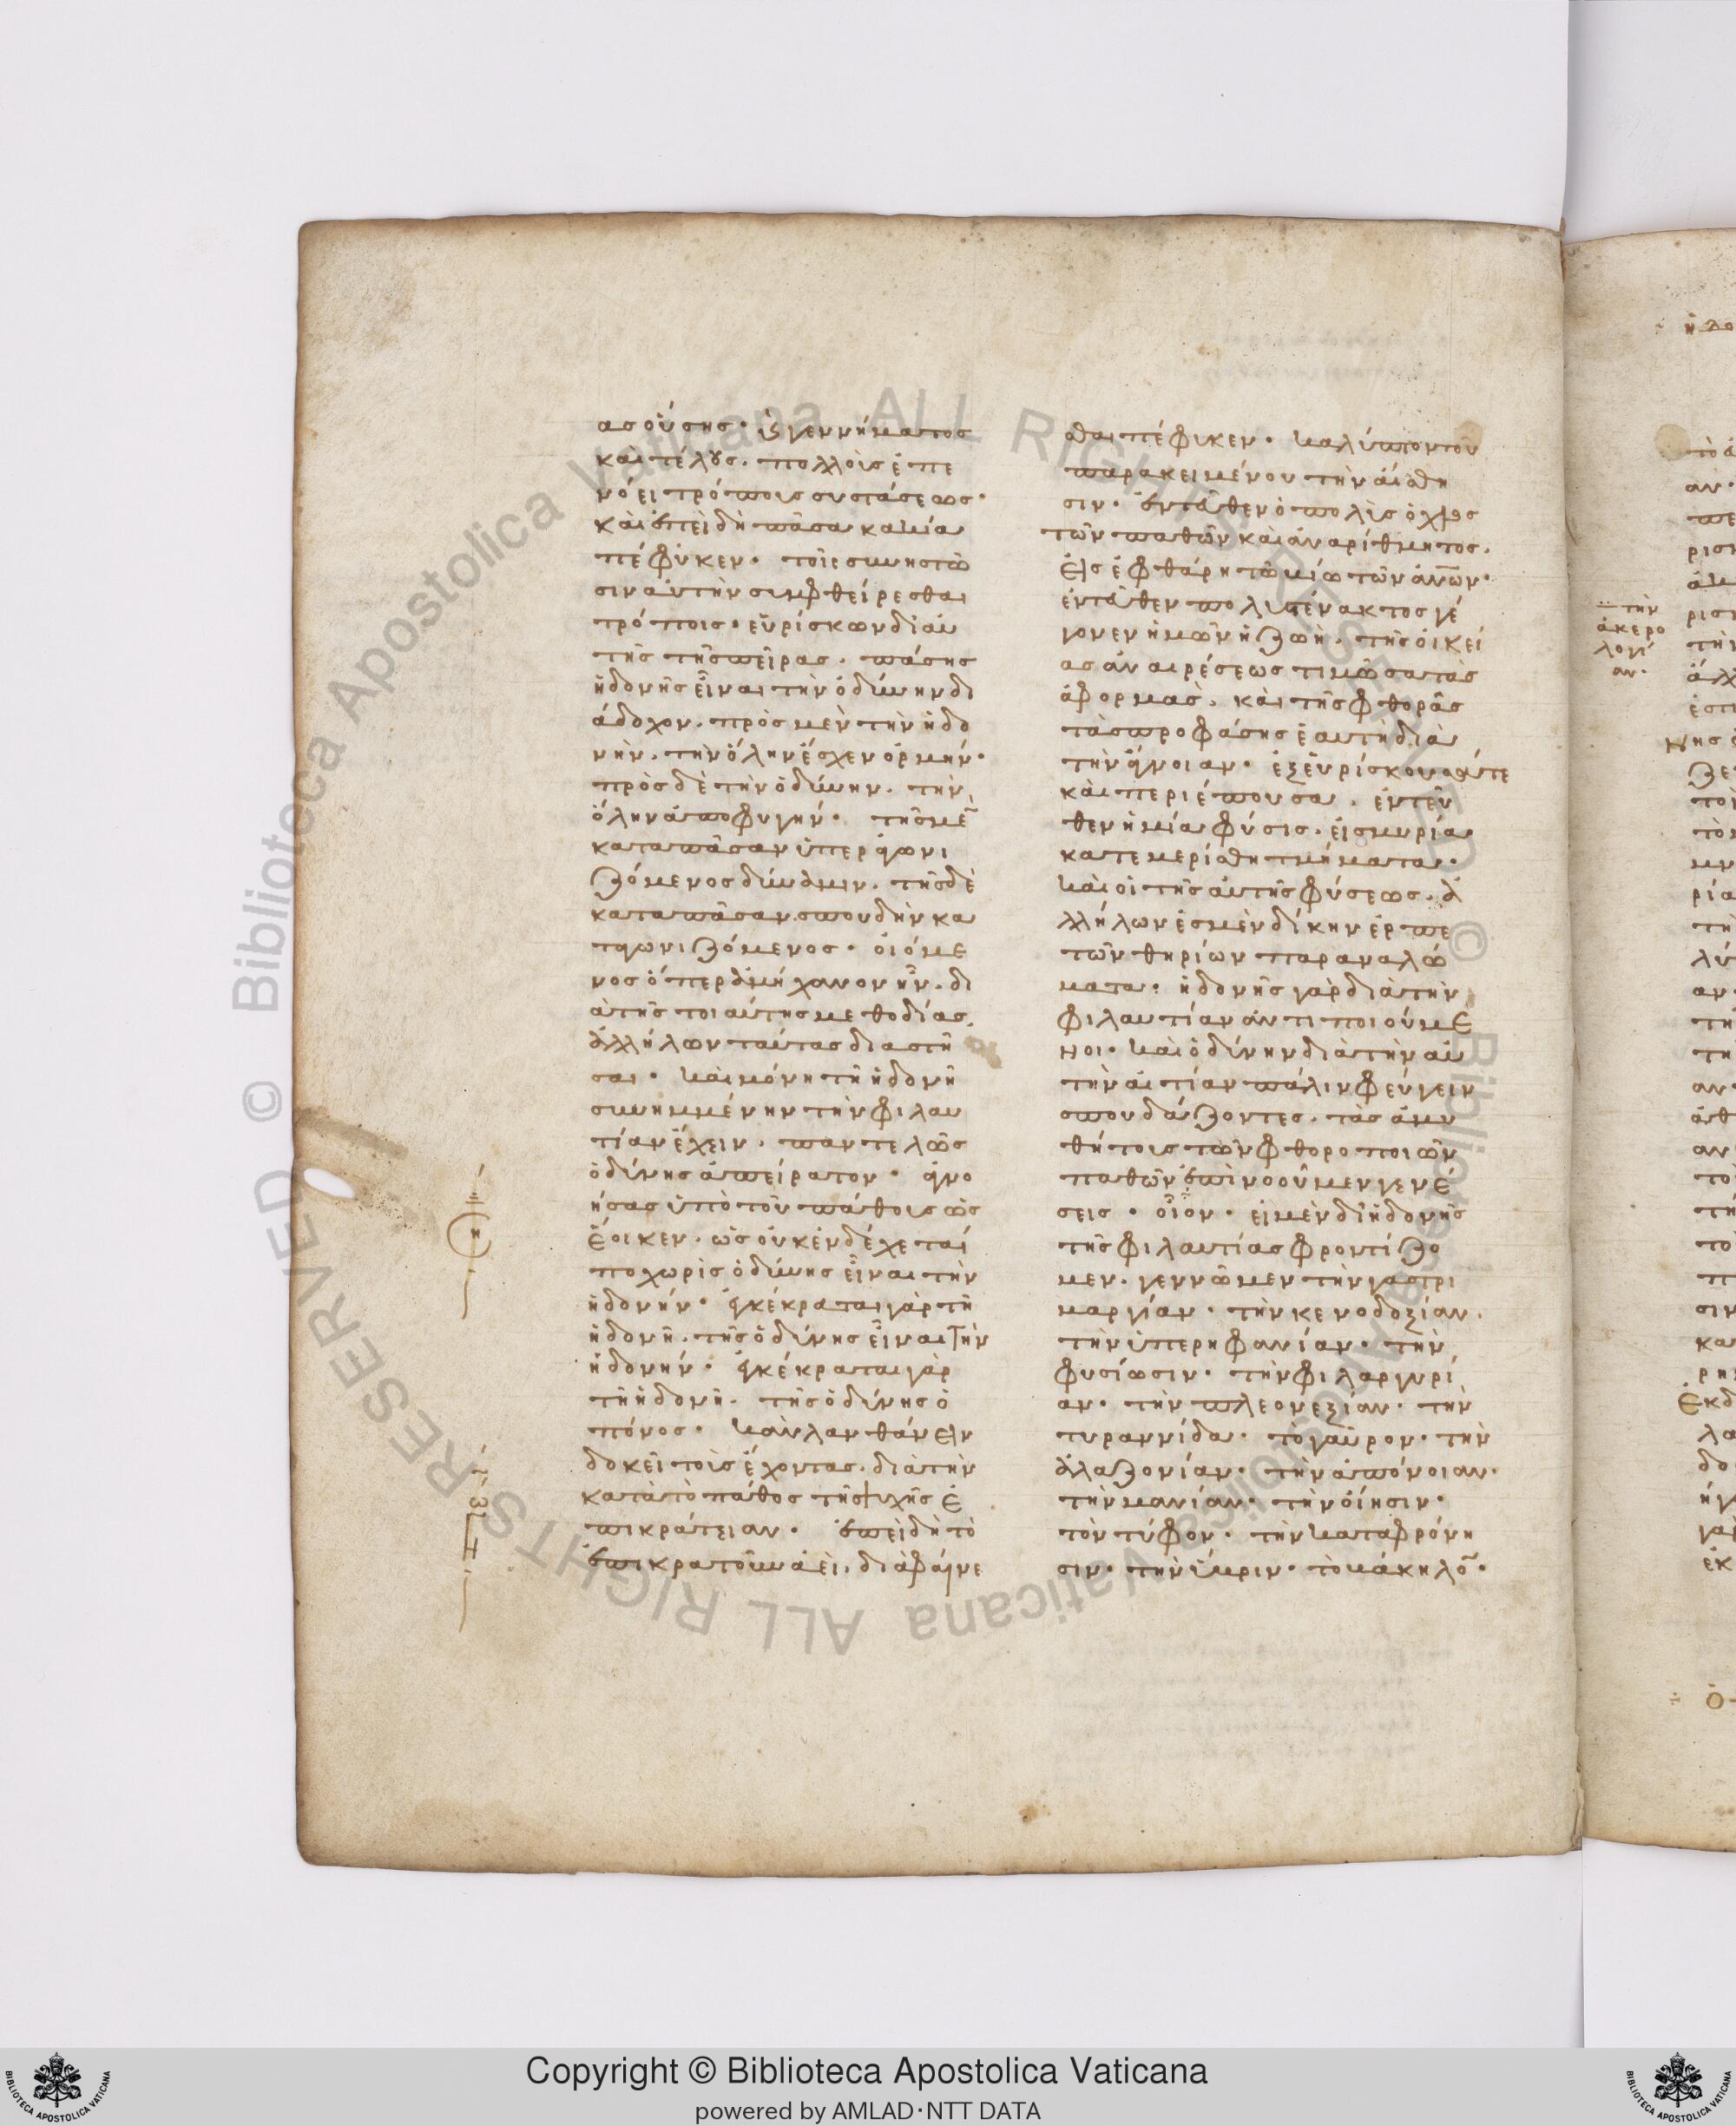 ασούσης· ὡς γεννήματος
καὶ τέλους. πολλοὺς ἐπε
νόει τρόπους συστάσεως·
καὶ ἐπειδὴ πᾶσα κακία
πέφυκεν· τοῖς συνηστῶ
σιν αὐτὴν συμφθείρεσθαι
τρόποις· εὑρίσκων δι' αὐ
τῆς τῆς πεῖρας. πάσης
ἡδονῆς εἶναι τὴν ὀδύνην δι
άδοχον. πρὸς μὲν τὴν ἡδο
νὴν. τὴν ὅλην ἔσχεν ὁρμήν·
πρὸς δὲ τὴν ὀδύνην. τὴν
ὅλην ἀποφυγήν· τῆς μὲ̅
κατα πᾶσαν ὑπεραγωνι
ζόμενος δύναμιν. τῆς δὲ
κατα πᾶσαν σπουδὴν κα
ταγωνιζόμενος· οἰόμε
νος ὅπερ ἀμήχανον ἦν. δι
ὰ τῆς τοιαύτης μεθοδίας.
ἀλλήλων ταύτας διαστῆ
σαι· καὶ μόνη τῆ ἡδονῆ
συνημμένην τὴν φιλαυ
τίαν ἔχειν. παντελῶς
ὀδύνης ἀπείρατον· ἀγνο
ήσας ὑπὸ τοῦ πάθους ὡς
ἔοικεν. ὡς οὐκ ἐνδέχεταί
πο χωρὶς ὀδύνης εἶναι τὴν
ἡδονήν· ἐγκέκραται γὰρ τῆ
ἡδονῆ. τῆς ὀδύνης εἶναι τὴν
ἡδονήν· ἐγκέκραται γὰρ
τῆ ἡδονῆ. τῆς ὀδύνης ὁ
πόνος· κἂν λανθάνειν
δοκεῖ τοὺς ἔχοντας. διὰ τὴν
κατὰ τὸ πάθος τῆς ψυχῆς ἐ
πικράτειαν· ἐπειδὴ τὸ
ἐπικρατοῦν ἀεὶ, διαφαίνε
σθαι πέφυκεν· καλύπτον τοῦ
παρακειμένου τὴν αἴσθη
σιν· ἐντεῦθεν ὁ πολὺς ὄχλος
τῶν παθῶν καὶ ἀναρίθμητος.
εἰσεφθάρη τῶ βίω τῶν ἀν̅ων·
ἐντεῦθεν πολυστένακτος γέ
γονεν ἡμῶν ἡ ζωὴ. τῆς οἰκεί
ας ἀναιρέσεως τιμῶσα τὰς
ἀφορμὰς. καὶ τῆς φθορᾶς
τὰς προφάσης ἑαυτῆ διὰ
τὴν ἄγνοιαν· ἐξευρίσκουσά τε
καὶ περιέπουσα. ἐντεῦ
θεν ἡ μία φύσις. εἰς μυρία
κατεμερίσθη τμήματα·
καὶ οἱ τῆς αὐτῆς φύσεως. ἀ
λλήλων ἐσμὲν δίκην ἑρπε
τῶν θηρίων παραναλώ
ματα· ἡδονῆς γὰρ διὰ τὴν
φιλαυτίαν ἀντιποιούμε
νοι· καὶ ὀδύνην διὰ τὴν αὐ
τὴν αἰτίαν πάλιν φεύγειν
σπουδάζοντες. τὰς ἀμυ
θήτους τῶν φθοροποιῶν
παθῶν ἐπινοοῦμεν γενέ
σεις· οἷον· εἰ μὲν δι' ἡδονῆς
τῆς φιλαυτίας φροντίζο
μεν. γεννῶμεν τὴν γαστρι
μαργίαν· τὴν κενοδοξίαν.
τὴν ὑπερηφανίαν· τὴν
φυσίωσιν· τὴν φιλαργυρί
αν· τὴν πλεονεξίαν· τὴν
τυραννίδα· τὸ γαῦρον· τὴν
ἀλαζονίαν· τὴν ἀπόνοιαν·
τὴν μανίαν· τὴν οἴησιν·
τὸν τύφον· τὴν καταφρόνη
σιν· τὴν ὕβριν· τὸ κάκηλο̅·
τὴν
ἀκερο
λογί
αν·
Copyright © Biblioteca Apostolica Vaticana
powered by AMLAD·NTT DATA